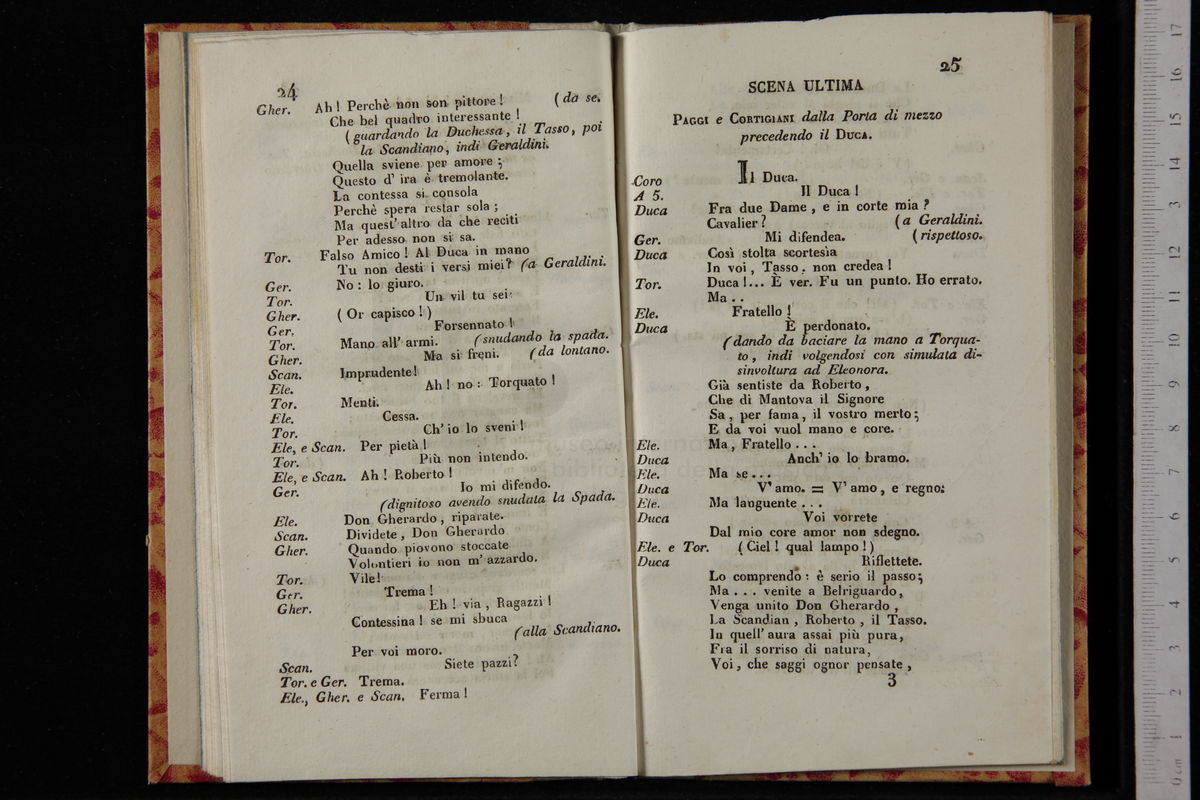 24
Gher. Ah! Perchè non son pittore! (da se.
Che bel quadro interessante!
(guardando la Duchessa, il Tasso, poi
la Scandiano, indi Geraldini.
Quella sviene per amore;
Questo d' ira è tremolante.
La contessa si consola
Perchè spera restar sola;
Ma quest' altro da che reciti
Per adesso non si sa.
Tor. Falso Amico! Al Duca in mano
Tu non desti i versi miei? (a Geraldini.
Ger. No: lo giuro.
Tor. Un vil tu sei:
Gher. (Or capisco!)
Ger. Forsennato!
Tor. Mano all' armi. (snudando la spada.
Gher. Ma si freni. (da lontano.
Scan. Imprudente!
Ele. Ah! no: Torquato!
Tor. Menti.
Ele. Cessa.
Tor. Ch' io lo sveni!
Ele, e Scan. Per pietà!
Tor. Più non intendo.
Ele, e Scan. Ah! Roberto!
Ger. Io mi difendo.
(dignitoso avendo snudata la Spada.
Ele. Don Gherardo, riparate.
Scan. Dividete, Don Gherardo
Gher. Quando piovono stoccate
Volontieri io non m' azzardo.
Tor. Vile!
Ger. Trema!
Gher. Eh! via, Ragazzi!
Contessina! se mi sbuca
(alla Scandiano.
Per voi moro.
Scan. Siete pazzi?
Tor. e Ger. Trema.
Ele., Gher. e Scan. Ferma!
25
SCENA ULTIMA
PAGGI e CORTIGIANI dalla Porta di mezzo
precedendo il DUCA.
Coro Il Duca.
A 5. Il Duca!
Duca Fra due Dame, e in corte mia?
Cavalier? (a Geraldini.
Ger. Mi difendea. (rispettoso.
Duca Così stolta scortesìa
In voi, Tasso, non credea!
Tor. Duca!... È ver. Fu un punto. Ho errato.
Ma..
Ele. Fratello!
Duca È perdonato.
(dando da baciare la mano a Torqua-
to, indi volgendosi con simulata di-
sinvoltura ad Eleonora.
Già sentiste da Roberto,
Che di Mantova il Signore
Sa, per fama, il vostro merto;
E da voi vuol mano e core.
Ele. Ma, Fratello...
Duca Anch' io lo bramo.
Ele. Ma se...
Duca V' amo. = V' amo, e regno:
Ele. Ma languente...
Duca Voi vorrete
Dal mio core amor non sdegno.
Ele. e Tor. (Ciel! qual lampo!)
Duca Riflettete.
Lo comprendo: è serio il passo;
Ma... venite a Belriguardo,
Venga unito Don Gherardo,
La Scandian, Roberto, il Tasso.
In quell' aura assai più pura,
Fra il sorriso di natura,
Voi, che saggi ognor pensate,
3